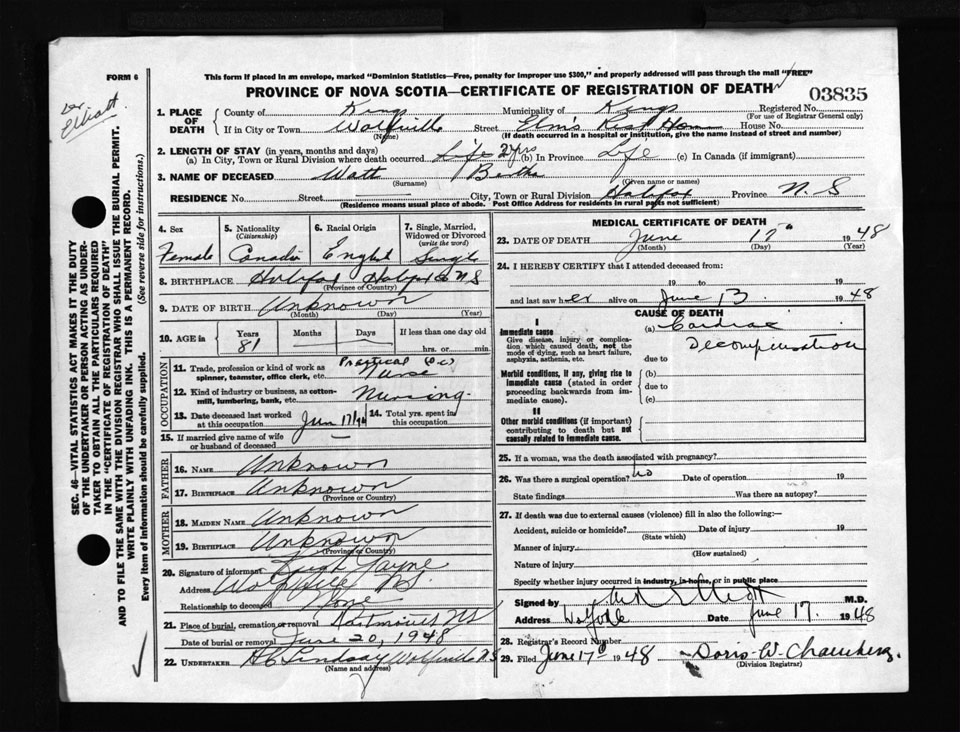 FORM 6
Dr Elliott
This form if placed in an envelope, marked "Dominion Statistics—Free, penalty for improper use $300," and properly addressed will pass through the mail "FREE"
PROVINCE OF NOVA SCOTIA—CERTIFICATE OF REGISTRATION OF DEATH
03835
1. PLACE OF DEATH County of Kings Municipality of Kings Registered No.
(For use of Registrar General only)
If in City or Town Wolfville Street Elm's Rest Home House No.
(Name) (If death occurred in a hospital or institution, give the name instead of street and number)
2. LENGTH OF STAY (in years, months and days)
(a) In City, Town or Rural Division where death occurred Life 2 yrs (b) In Province Life (c) In Canada (if immigrant)
3. NAME OF DECEASED Watt Bertha
(Surname) (Given name or names)
RESIDENCE No. Street City, Town or Rural Division Halifax Province N. S
(Residence means usual place of abode. Post Office Address for residents in rural parts not sufficient)
4. Sex Female
5. Nationality (Citizenship) Canadian
6. Racial Origin English
7. Single, Married, Widowed or Divorced (write the word) Single
8. BIRTHPLACE Halifax Halifax Co NS
(Province or Country)
9. DATE OF BIRTH Unknown
(Month) (Day) (Year)
10. AGE in Years 81 Months Days If less than one day old hrs. or min.
OCCUPATION
11. Trade, profession or kind of work as spinner, teamster, office clerk, etc. Practical Nurse
12. Kind of industry or business, as cotton-mill, lumbering, bank, etc. Nursing
13. Date deceased last worked at this occupation Jun 17/
14. Total yrs. spent in this occupation
15. If married give name of wife or husband of deceased —
FATHER
16. NAME Unknown
17. BIRTHPLACE Unknown
(Province or Country)
MOTHER
18. MAIDEN NAME Unknown
19. BIRTHPLACE Unknown
(Province or Country)
20. Signature of informant Hugh Jayne
Address Wolfville NS.
Relationship to deceased None
21. Place of burial, cremation or removal Dartmouth NS
Date of burial or removal June 20, 1948
22. UNDERTAKER A C Lindsay Wolfville N.S
(Name and address)
MEDICAL CERTIFICATE OF DEATH
23. DATE OF DEATH June 17th 1948
(Month) (Day) (Year)
24. I HEREBY CERTIFY that I attended deceased from:
19 to 19
and last saw her alive on June 13 1948
CAUSE OF DEATH
I
Immediate cause
Give disease, injury or complication which caused death, not the mode of dying, such as heart failure, asphyxia, asthenia, etc.
(a) Cardiac
Decompensation
due to
Morbid conditions, if any, giving rise to immediate cause (stated in order proceeding backwards from immediate cause).
(b)
due to
(c)
II
Other morbid conditions (if important) contributing to death but not causally related to immediate cause.
25. If a woman, was the death associated with pregnancy?
26. Was there a surgical operation? no Date of operation 19
State findings Was there an autopsy?
27. If death was due to external causes (violence) fill in also the following:—
Accident, suicide or homicide? Date of injury 19
(State which)
Manner of injury
(How sustained)
Nature of injury
Specify whether injury occurred in industry, in home, or in public place
Signed by Elliott M.D.
Address Wolfville Date June 17. 1948
28. Registrar's Record Number
29. Filed June 17th 1948 Doris W. Chambers.
(Division Registrar)
SEC. 46—VITAL STATISTICS ACT MAKES IT THE DUTY
OF THE UNDERTAKER OR PERSON ACTING AS UNDER-
TAKER TO OBTAIN ALL THE PARTICULARS REQUIRED
IN THE "CERTIFICATE OF REGISTRATION OF DEATH"
AND TO FILE THE SAME WITH THE DIVISION REGISTRAR WHO SHALL ISSUE THE BURIAL PERMIT.
WRITE PLAINLY WITH UNFADING INK. THIS IS A PERMANENT RECORD.
Every item of information should be carefully supplied. (See reverse side for instructions.)